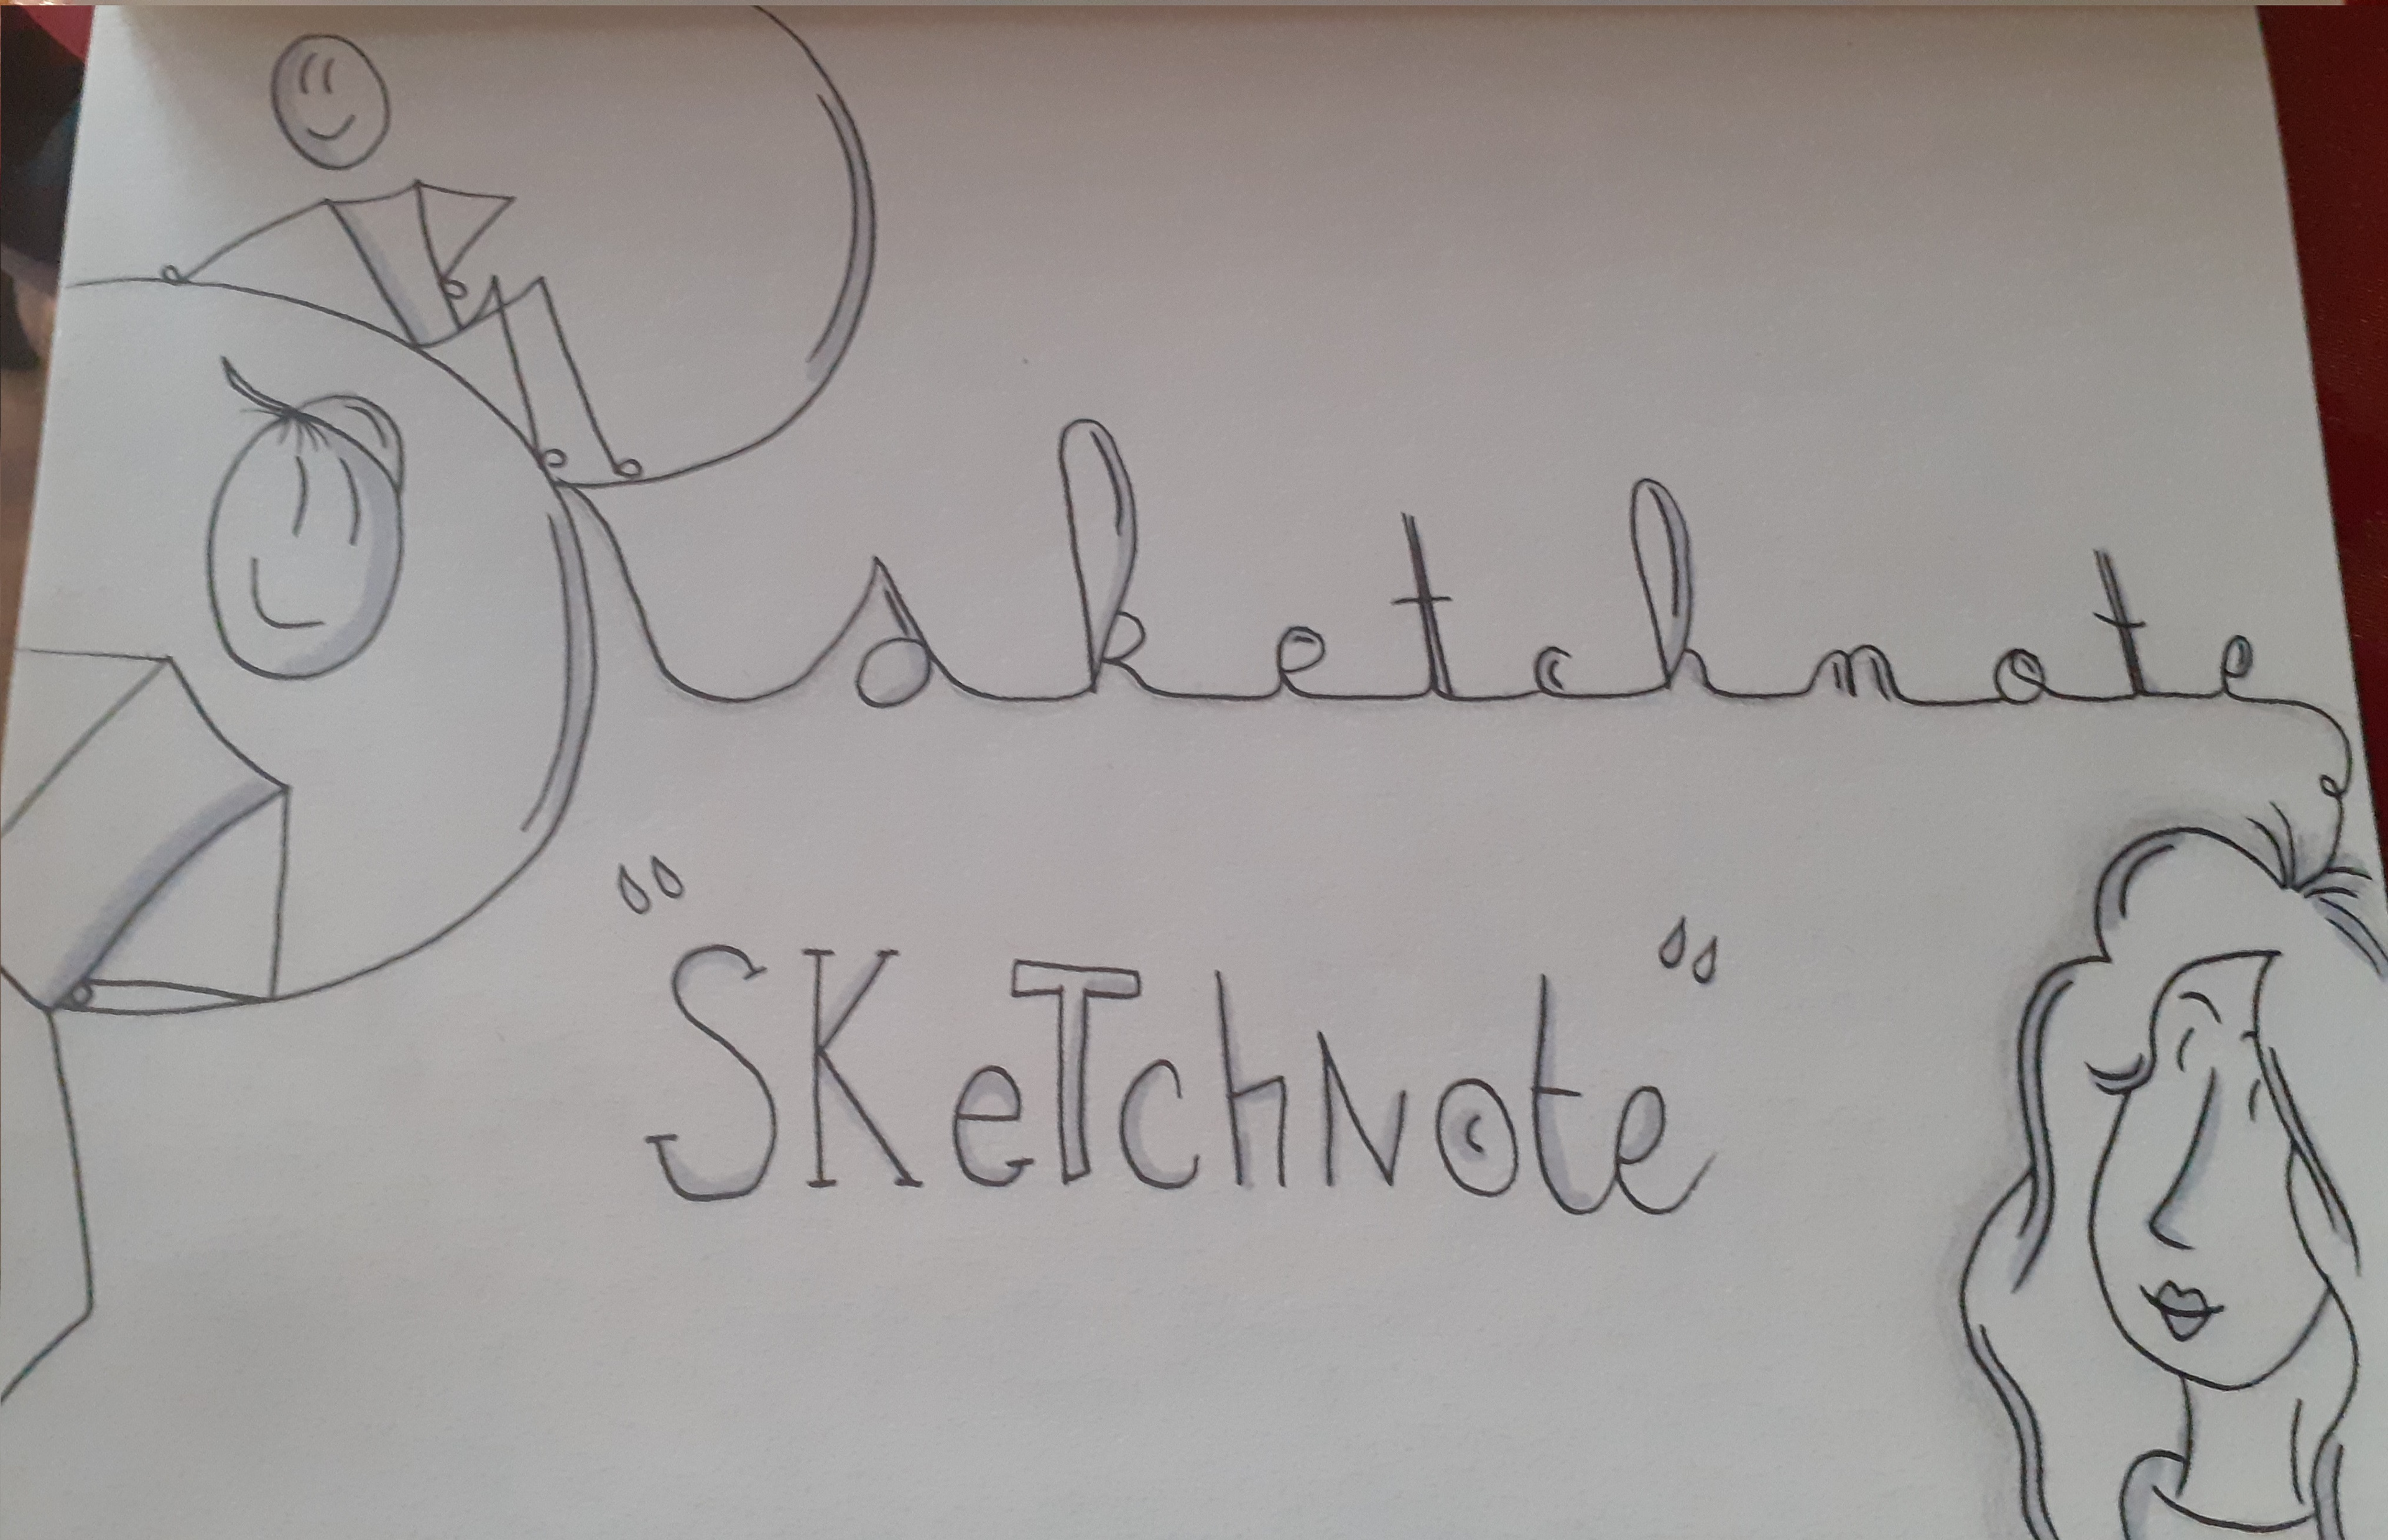 sketchnote
"SKeTchNote"